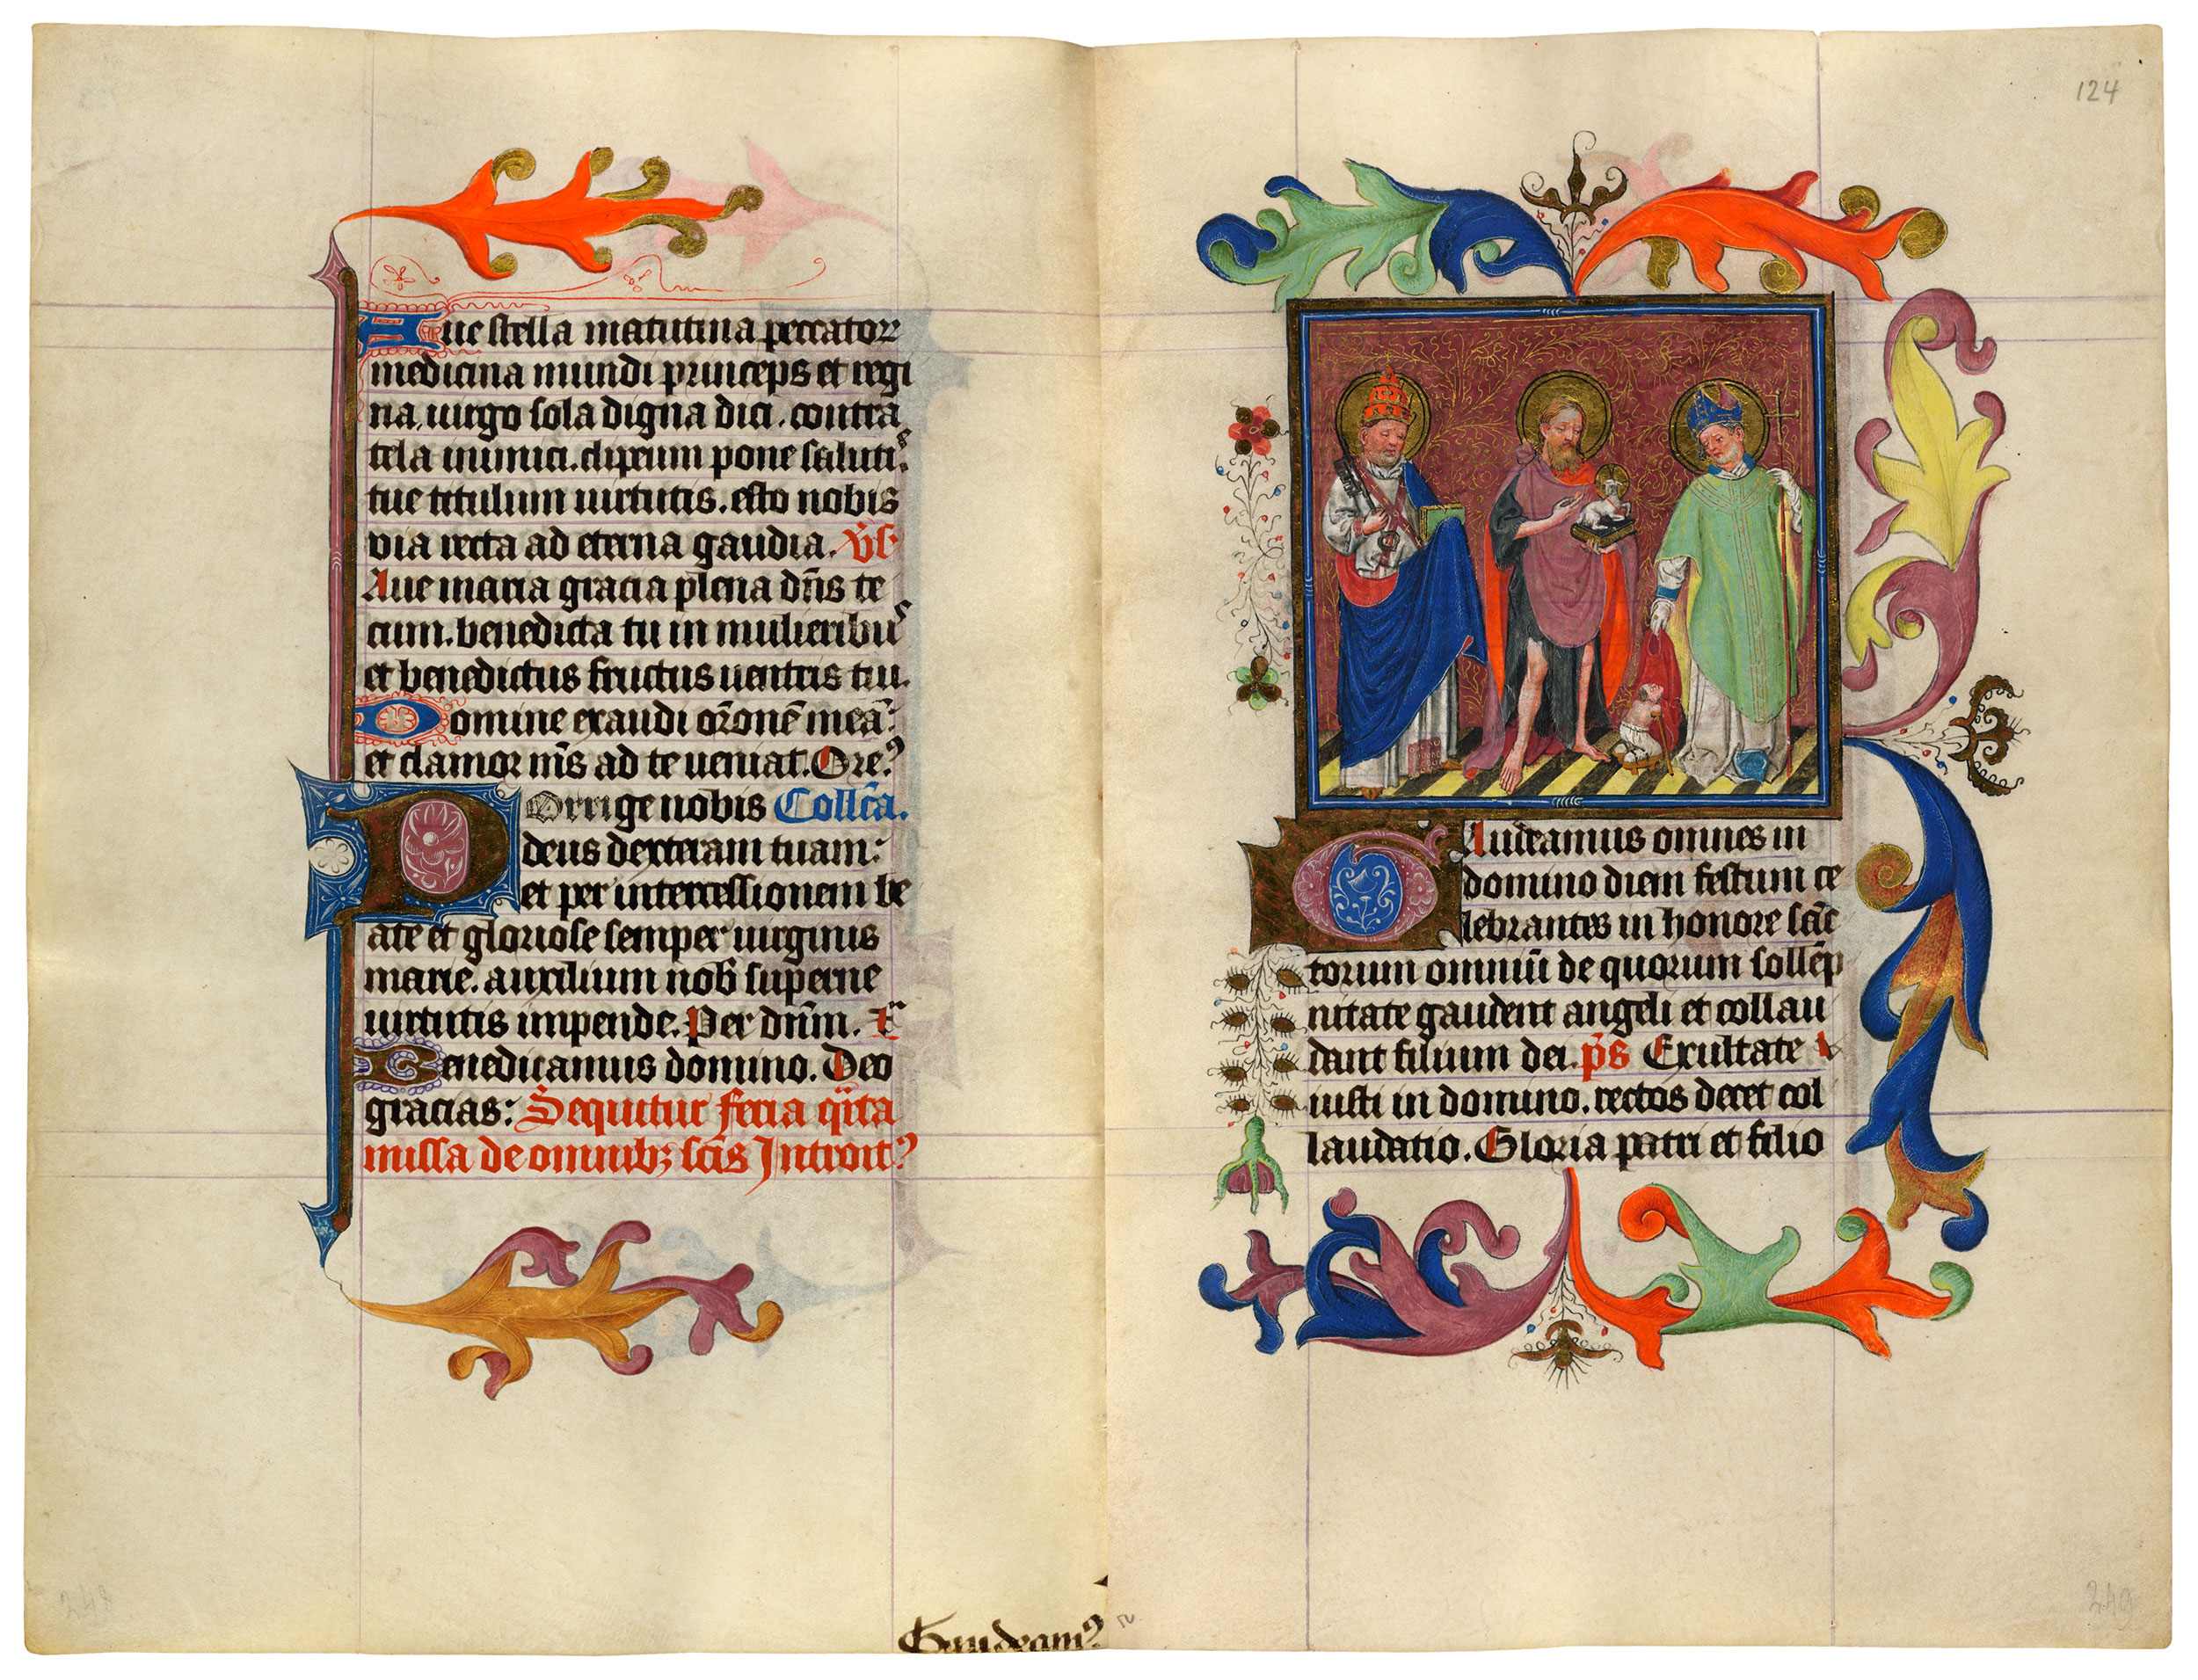 Aue stella matutina peccator
medicina mundi princeps et regi
na. uirgo sola digna dici. contra
tela inimici. clipeum pone saluti⁹
tue titulum uirtutis. esto nobis
via recta ad eterna gaudia. v̄s
Aue maria gracia plena dn̄s te
cum. benedicta tu in mulieribu⁹
et benedictus fructus uentris tui.
Domine exaudi or̄onē meā:
et clamor m̄s ad te ueniat. Ore⁹
Porrige nobis Coll̄ca.
deus dexteram tuam:
et per intercessionem be
ate et gloriose semper uirginis
marie. auxilium nob̄ superne
uirtutis impende. Per dn̄m.
Benedicamus domino. Deo
gracias: Sequitur feria qīta
missa de omnibꝫ sc̄is Introit⁹
Gaudeam⁹
124
Gaudeamus omnes in
domino diem festum ce
lebrantes in honore sāc
torum omniū de quorum sollēp
nitate gaudent angeli et collau
dant filium dei. p̄s Exultate
iusti in domino. rectos decet col
laudatio. Gloria patri et filio
248
249